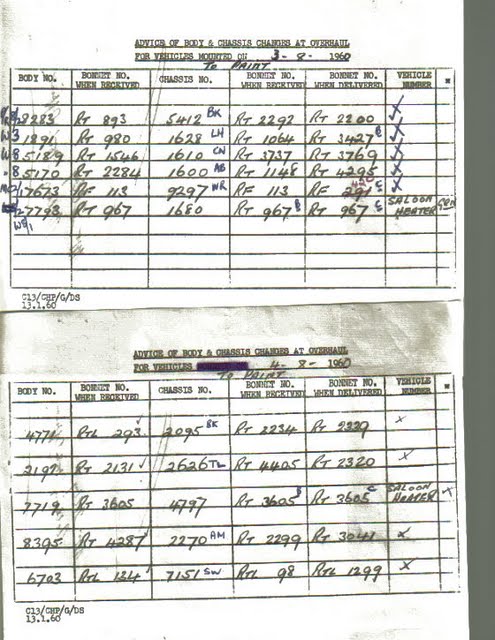 ADVICE OF BODY & CHASSIS CHANGES AT OVERHAUL
FOR VEHICLES MOUNTED ON 3-8- 1960
TO PAINT
BODY NO. BONNET NO. WHEN RECEIVED CHASSIS NO. BONNET NO. WHEN RECEIVED BONNET NO. WHEN DELIVERED VEHICLE NUMBER
8283 RT 893 5412 BK RT 2292 RT 2200 X
W3 1891 RT 980 1628 LH RT 1064 RT 3427 B X
W8 5189 RT 1546 1610 CN RT 3737 RT 3769 X
8 5170 RT 2284 1600 AB RT 1148 RT 4295 X
17673 RF 113 9297 WR RF 113 RF C X
7793 RT 967 1680 RT 967 B RT 967 C SALOON HEATER
C13/CHP/G/DS
13.1.60
ADVICE OF BODY & CHASSIS CHANGES AT OVERHAUL
FOR VEHICLES 4-8- 1960
TO PAINT
BODY NO. BONNET NO. WHEN RECEIVED CHASSIS NO. BONNET NO. WHEN RECEIVED BONNET NO. WHEN DELIVERED VEHICLE NUMBER
4771 RTL 293 2095 BK RT 2234 RT 2229 X
2197 RT 2131 2626 TL RT 4405 RT 2320 X
7719 RT 3605 4797 RT 3605 B RT 3605 C SALOON HEATER X
8395 RT 4287 2270 AM RT 2299 RT 3041 X
6703 RTL 124 7151 SW RTL 98 RTL 1299 X
C13/CHP/G/DS
13.1.60